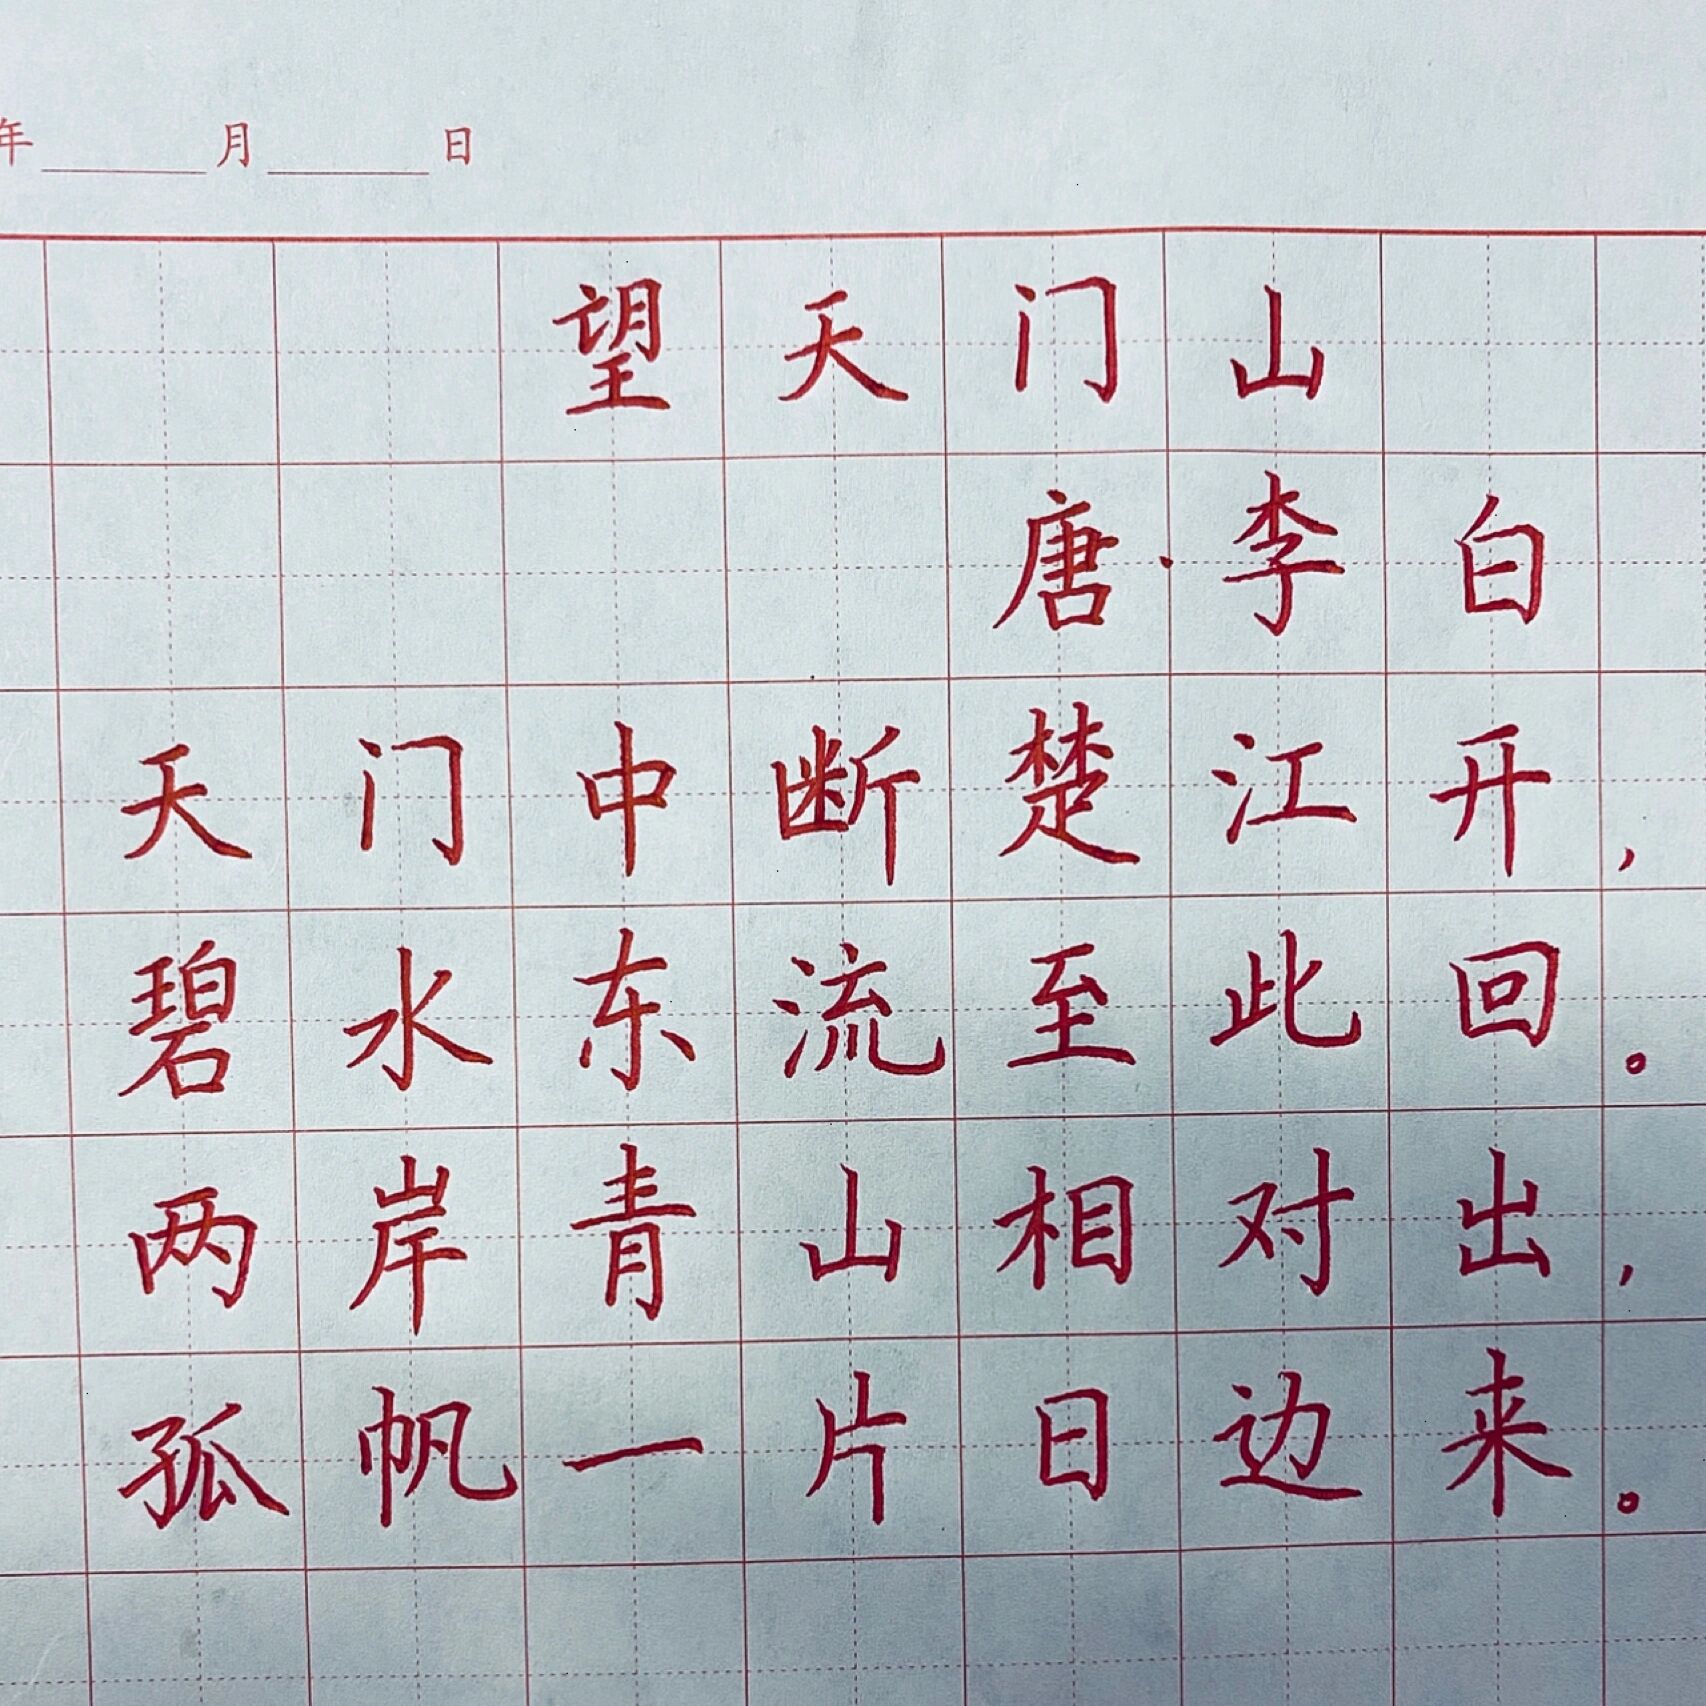 年 月 日
望天门山
唐·李白
天门中断楚江开，
碧水东流至此回。
两岸青山相对出，
孤帆一片日边来。